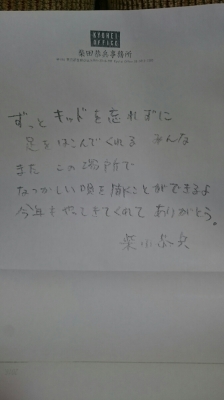 KYOHEI
OFFICE
柴田恭兵事務所
ずっとキッドを忘れずに
足をはこんでくれる みんな
また この場所で
なつかしい唄を聞くことができるよ
今年もやってきてくれて ありがとう。
柴田恭兵